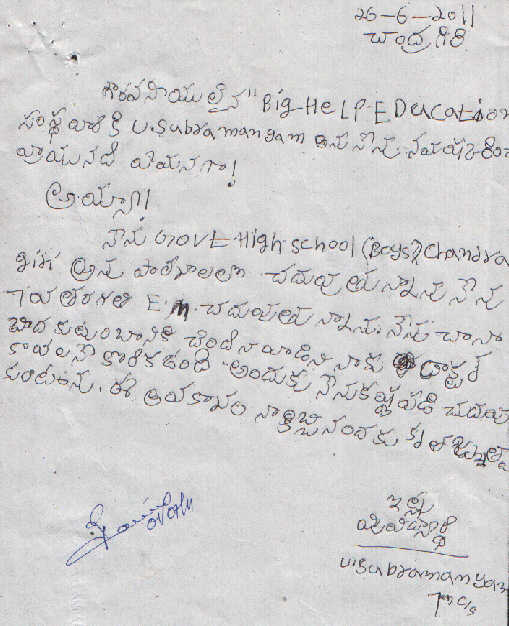 25-6-2011
చంద్రగిరి
గౌరవనీయులైన "Big-HELP-EDucation
సంస్థ వారికి U.Subramanyam అను నేను నమస్కరించి
వ్రాయునది ఏమనగా!
అయ్యా!
నేను GOVT-High-school (Boys) Chandra
గిరి అను పాఠశాలలో చదువుతున్నాను నేను
7వ తరగతి E.M. చదువుతున్నాను. నేను చాలా
బీద కుటుంబానికి చెందిన వాడిని నాకు డాక్టర్
కావాలనే కోరిక ఉంది. అందుకు నేను కష్టపడి చదువు
కుంటాను. ఈ అవకాశం నాకిచ్చినందుకు కృతజ్ఞతలు
ఇట్లు
మీ విద్యార్థి
U.Subramanyam
7th c/s